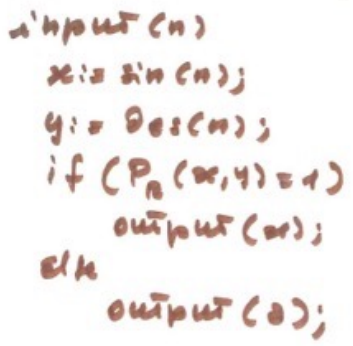 input(n)
x:= sin(n);
y:= (n);
if (P_R(x,y)=1)
output(x);
else
output( );